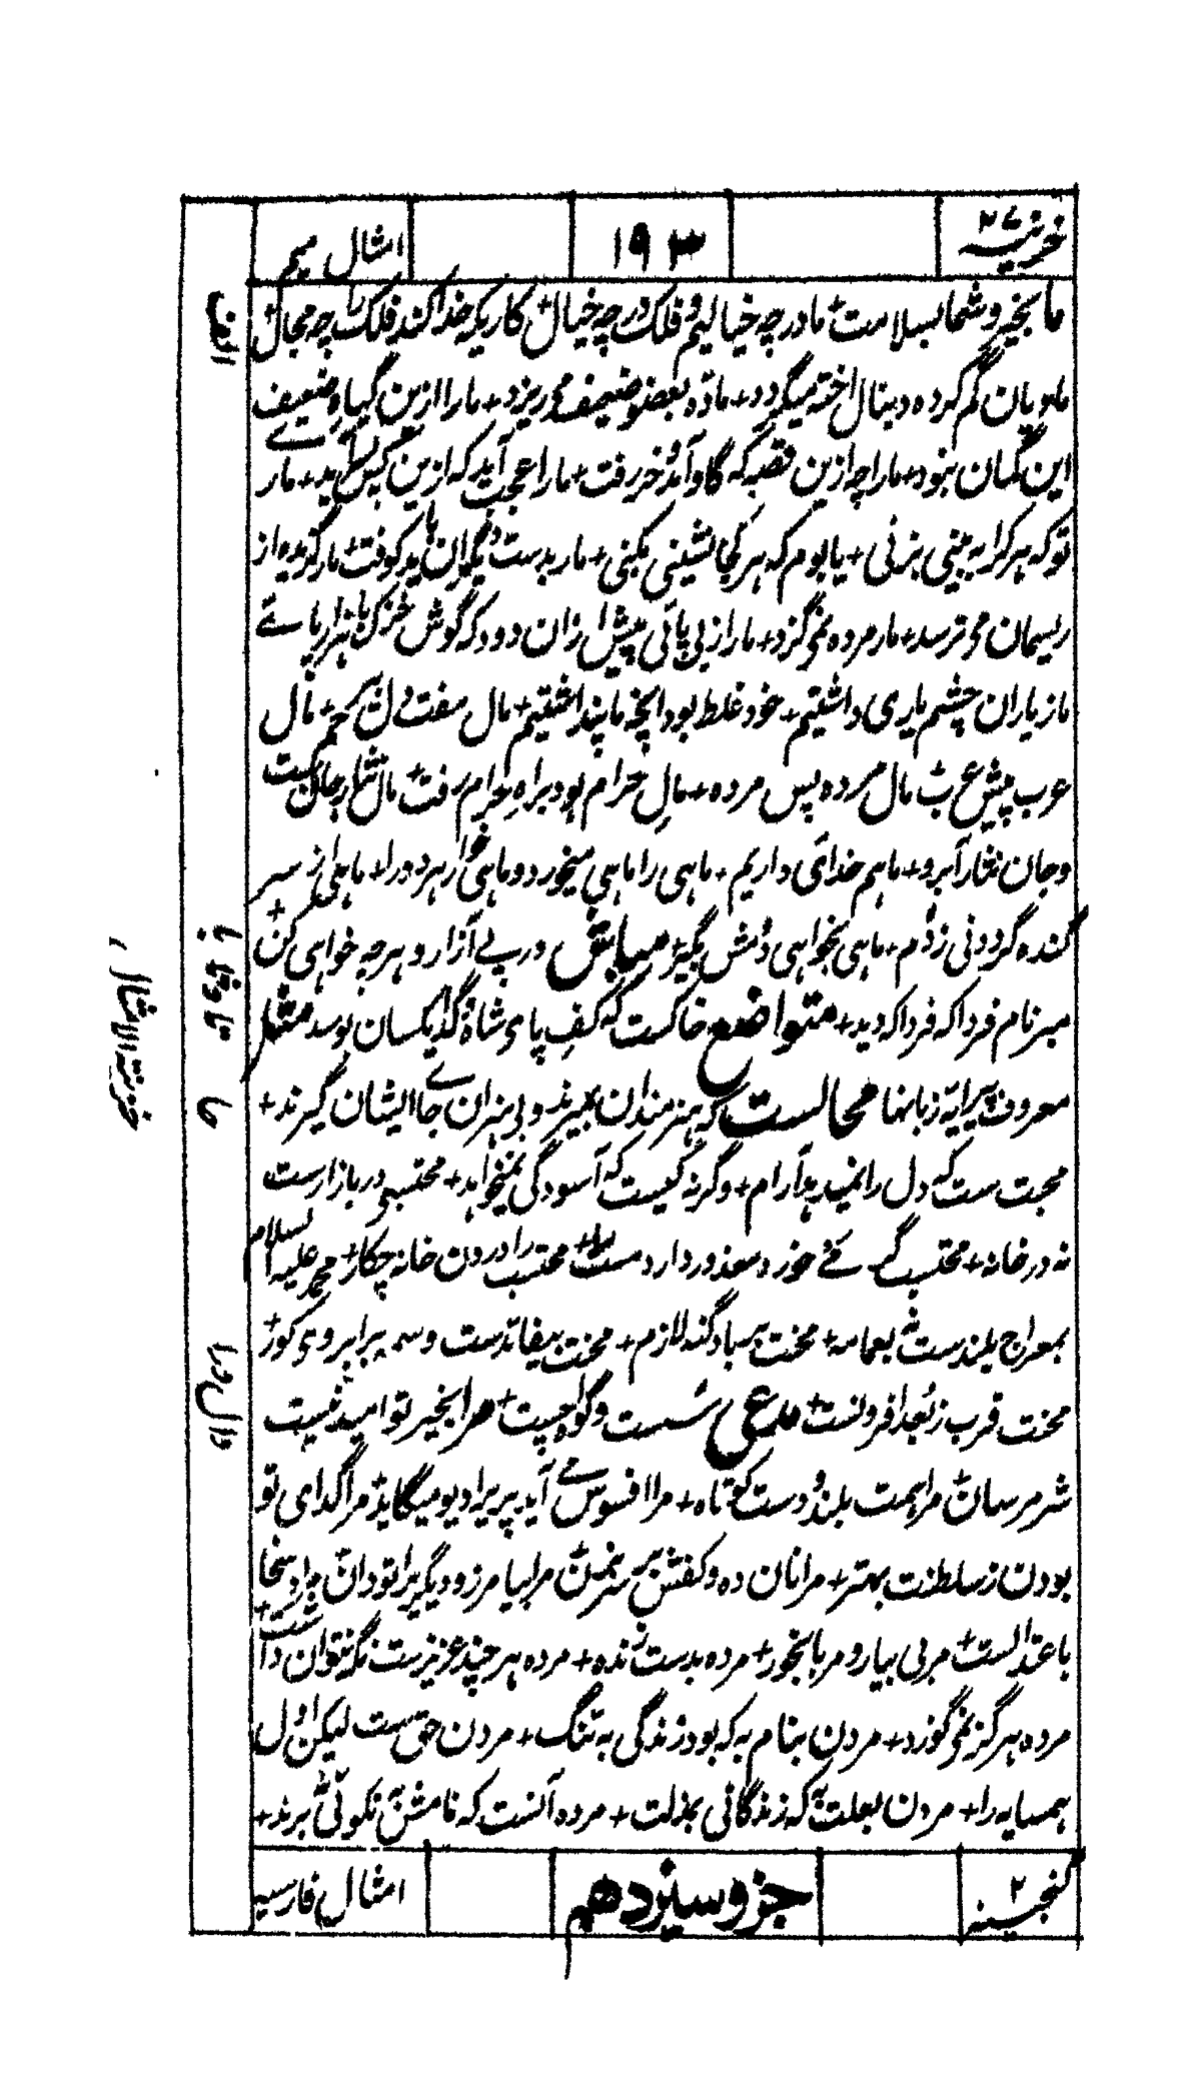 خزینه ۲۷
۱۹۳
امثال میم
ما بخیر و شما بسلامت + ما در چه خیالیم و فلک در چه خیال + کاریکه خدا کند فلک را چه مجال +
مادیان گم کرده دنبال اخته میگردد + ماده بعضو ضعیف میریزد + ما را ازین گیاه ضعیف
این گمان نبود + ما را چه ازین قصه که گاو آمد و خر رفت + ما را عجب آید که ازین کیس آید + مار
توکه هر کرا به بینی بزنی + یا بوم که هر کجا نشینی بکنی + مار بدست دیگران باید کوفت + مار گزیده از
ریسمان می ترسد + مار مرده نمی گزد + مار از بی پائی پیش ازان دود که گوش خزک با هزار پائے
ما ز یاران چشم یاری داشتیم + خود غلط بود آنچه ما پنداشتیم + مال مفت دل بیرحم + مال
عرب پیش عرب + مال مرده پس مرده + مال حرام بود براه حرام رفت + مال نثار جان ست
و جان نثار آبرو + ما هم خدائی داریم + ماهی را ماهی میخورد و ماهی خوار هر دو را + ماهی از سر
گنده گردد نی ز دم + ماهی نخواهی دمش بگیر + مباش در پے آزار و هر چه خواهی کن +
مبر نام فردا که فردا که دید + متواضع خاکست که کف پای شاه و گدا یکسان بوسد مثل
معروف پیرایه زبانها محالست که هنرمندان بمیرند و بی هنران جاے ایشان گیرند +
محبت ست که دل را نمیدهد آرام + وگرنه کیست که آسودگی نمیخواهد + محتسب در بازارست
نه در خانه + محتسب گر مے خورد معذور دارد مست را + محتسب را درون خانه چکار + محمد علیه السلام
بمعراج بلندست نه بعمامه + محنت بر باد گنه لازم + محنت بیفائدست وسمه بر ابروی کور +
محنت قرب ز بعد افزونست + مدعی سست و گواه چست + مرا بخیر تو امید نیست
شر مرسان + مرا همت بلند و دست کوتاه + مرا افسوس مے آید پریرا دیو میگاید + مرا گدای تو
بودن ز سلطنت بهتر + مرا نان ده و کفش بر سر بزن + مرا بیامرز و دیگریرا تو دانی +
باعتدالست + مربی بیار و مربا بخور + مرده بدست زنده + مرده هر چند عزیزست نگه نتوان داشت +
مرده هرگز نمی گوزد + مردن بنام به که بود زندگی به ننگ + مردن حق ست لیکن اول
همسایه را + مردن بعلت به که زندگانی بذلت + مرده آنست که نامش به نکوئی نبرند +
گنجینه ۲
جزو سیزدهم
امثال فارسیه
الف
با تا وقا
حا
دال و را
خزینة الامثال